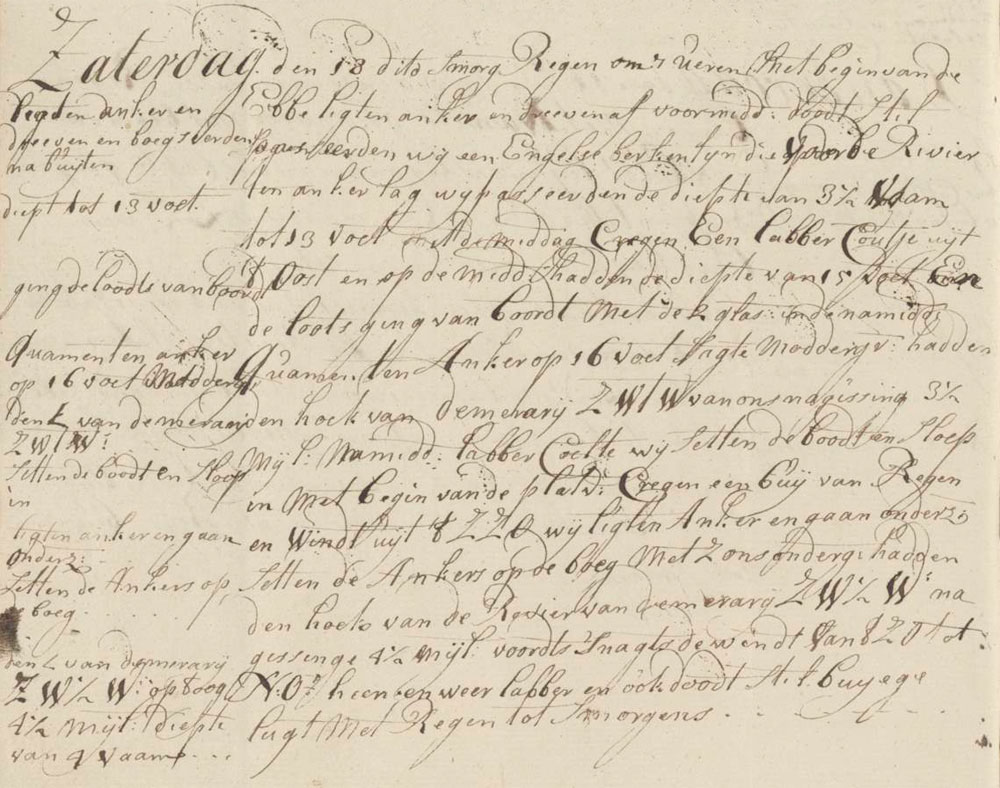 Zaterdag den 18 dito Smorg Regen om 7 ueren Met begin van de
legden anker en
dreeven en boegseerden
na buyten
diept tot 13 voet.
ging de loodts van boord
Quamen ten anker
op 16 voet Modder
den L van demerarij
ZWTW:
Setten de boodt en Sloep
in
ligten anker en gaan
onderz:
Setten de Ankers op,
boeg.
den L van demerarij
ZW½W: op boog
4½ Mijl: diepte
van 4 vaam...
Ebbe ligten anker en dreeven af voormidd: doodt Stil
passeerden wij een Engelse berkentyn die voor de Rivier
ten anker lag wij passeerden de diepte van 3½ Vaam
tot 13 voet met de middag Cregen Een labber Coeltje uijt
't Oost en op de midd: hadden de diepte van 15 voet En
de loots ging van boordt Met de k glas: in de namidd:
Quamen ten Anker op 16 voet Sagte Modder hadden
den hoek van demerarij ZWTW van ons na gissing 3½
Mijl: Namidd: labber Coelte wij Setten de boodt en Sloep
in Met begin van de platd: Cregen een buij van Regen
en windt uijt 't ZZO wij ligten Anker en gaan onderz:
Setten de Ankers op de boeg Met Zons onderg: hadden
den hoek van de Revier van demerarij ZW½W: na
gissinge 4½ Mijl: voordts Snagts de windt van 't ZO tot
N.O: heen en weer labber en ook doodt Stil buyege
lugt Met Regen tot Smorgens.